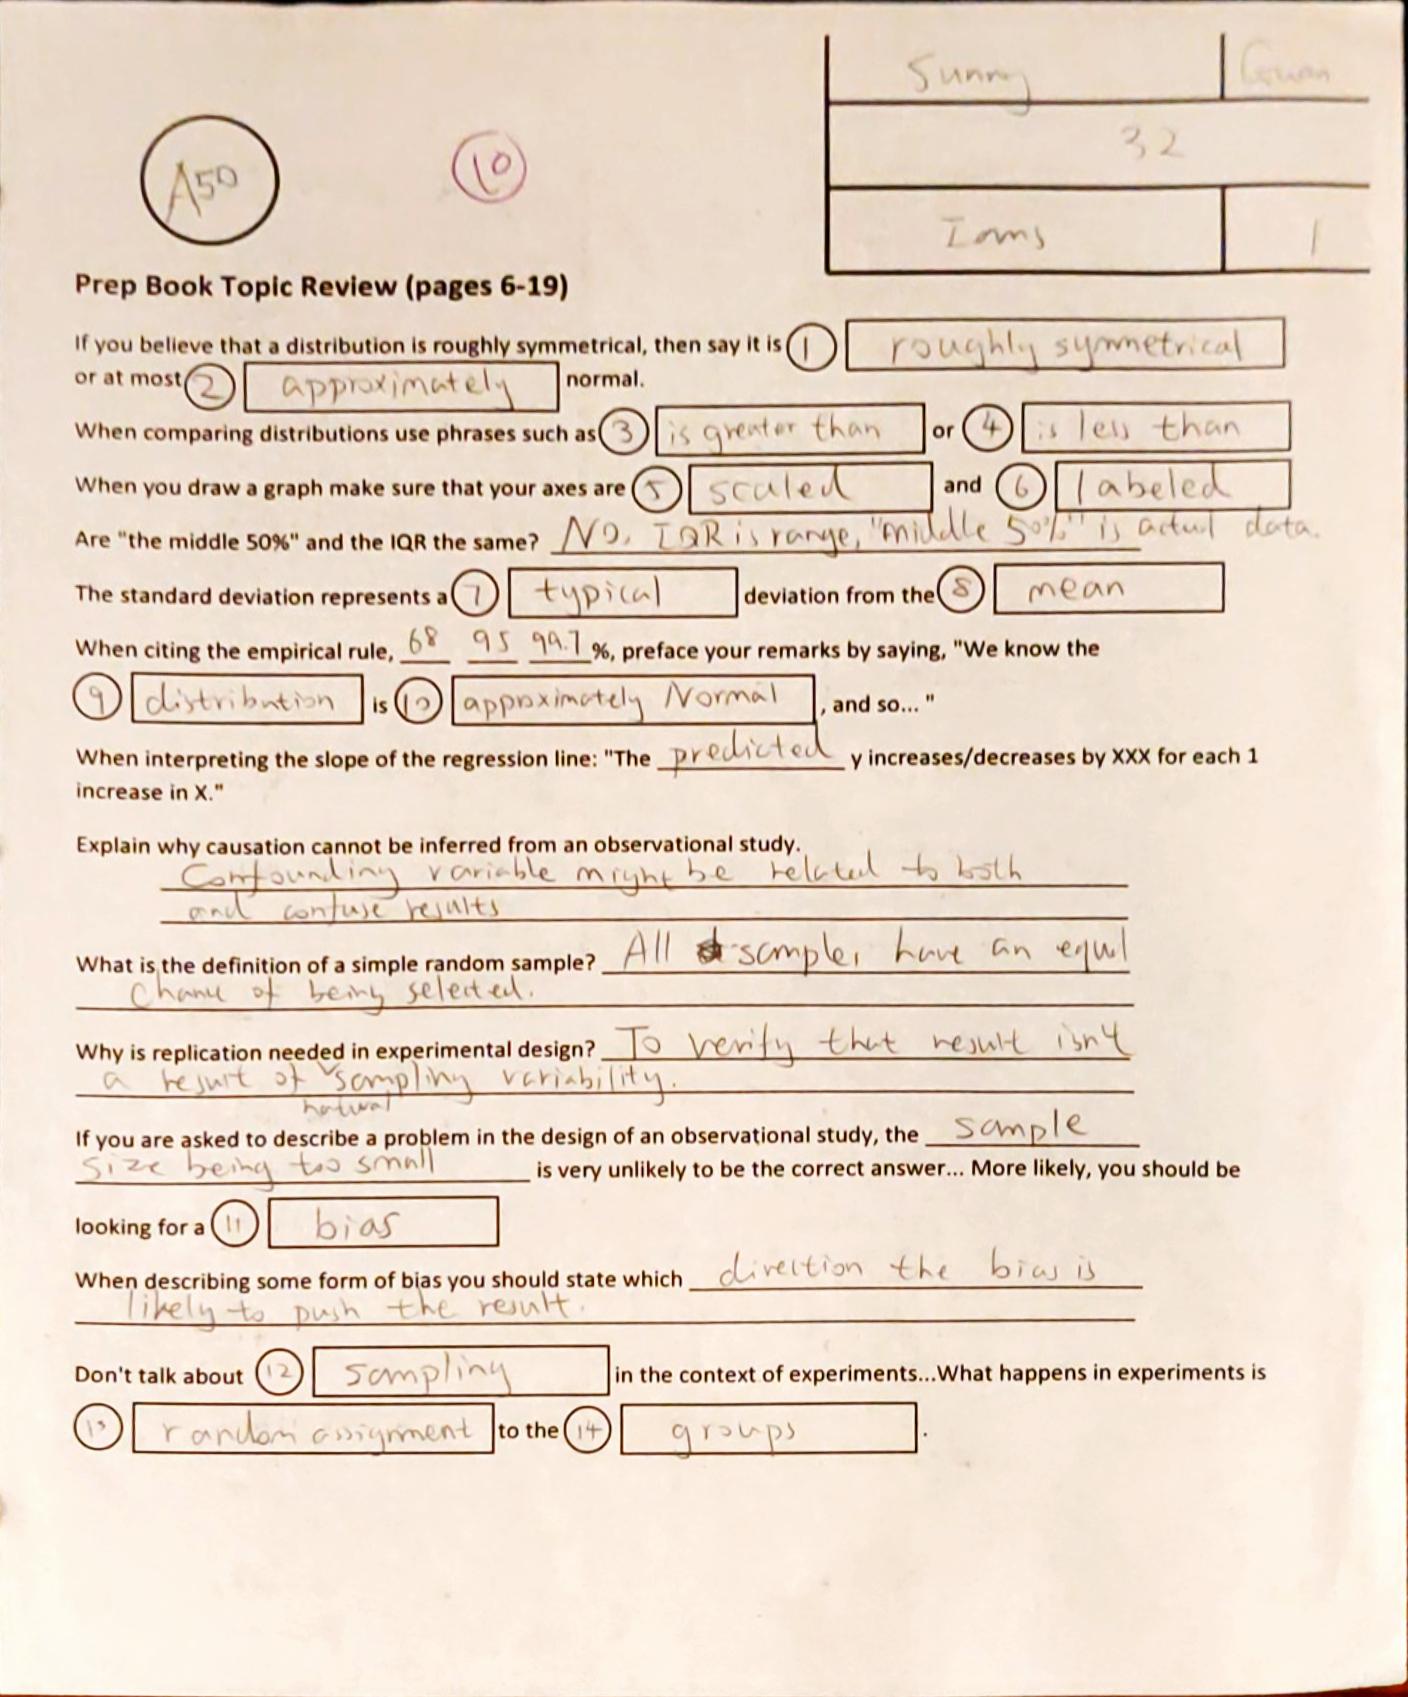 Sunny Guan
32
Iams 1
A50
10
Prep Book Topic Review (pages 6-19)
If you believe that a distribution is roughly symmetrical, then say it is 1 roughly symmetrical
or at most 2 approximately normal.
When comparing distributions use phrases such as 3 is greater than or 4 is less than
When you draw a graph make sure that your axes are 5 scaled and 6 labeled
Are "the middle 50%" and the IQR the same? No, IQR is range, "middle 50%" is actual data.
The standard deviation represents a 7 typical deviation from the 8 mean
When citing the empirical rule, 68 95 99.7 %, preface your remarks by saying, "We know the
9 distribution is 10 approximately Normal , and so... "
When interpreting the slope of the regression line: "The predicted y increases/decreases by XXX for each 1
increase in X."
Explain why causation cannot be inferred from an observational study.
Confounding variable might be related to both
and confuse results
What is the definition of a simple random sample? All samples have an equal
chance of being selected.
Why is replication needed in experimental design? To verify that result isn't
a result of natural sampling variability.
If you are asked to describe a problem in the design of an observational study, the sample
size being too small is very unlikely to be the correct answer... More likely, you should be
looking for a 11 bias
When describing some form of bias you should state which direction the bias is
likely to push the result.
Don't talk about 12 sampling in the context of experiments...What happens in experiments is
13 random assignment to the 14 groups .